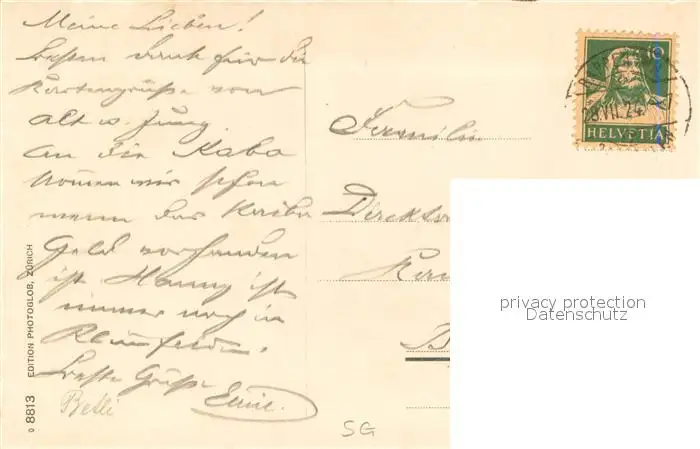 Meine Lieben!
Besten Dank für die
Kartengrüsse von
alt u. Jung
an die Kaba
können wir schon
wenn das Kaiba
Geld vorhanden
ist Hanny ist
immer noch in
Rheinfelden.
Beste Grüsse
Familie
10
HELVETIA
privacy protection
Datenschutz
EDITION PHOTOGLOB, ZÜRICH
8813
SG